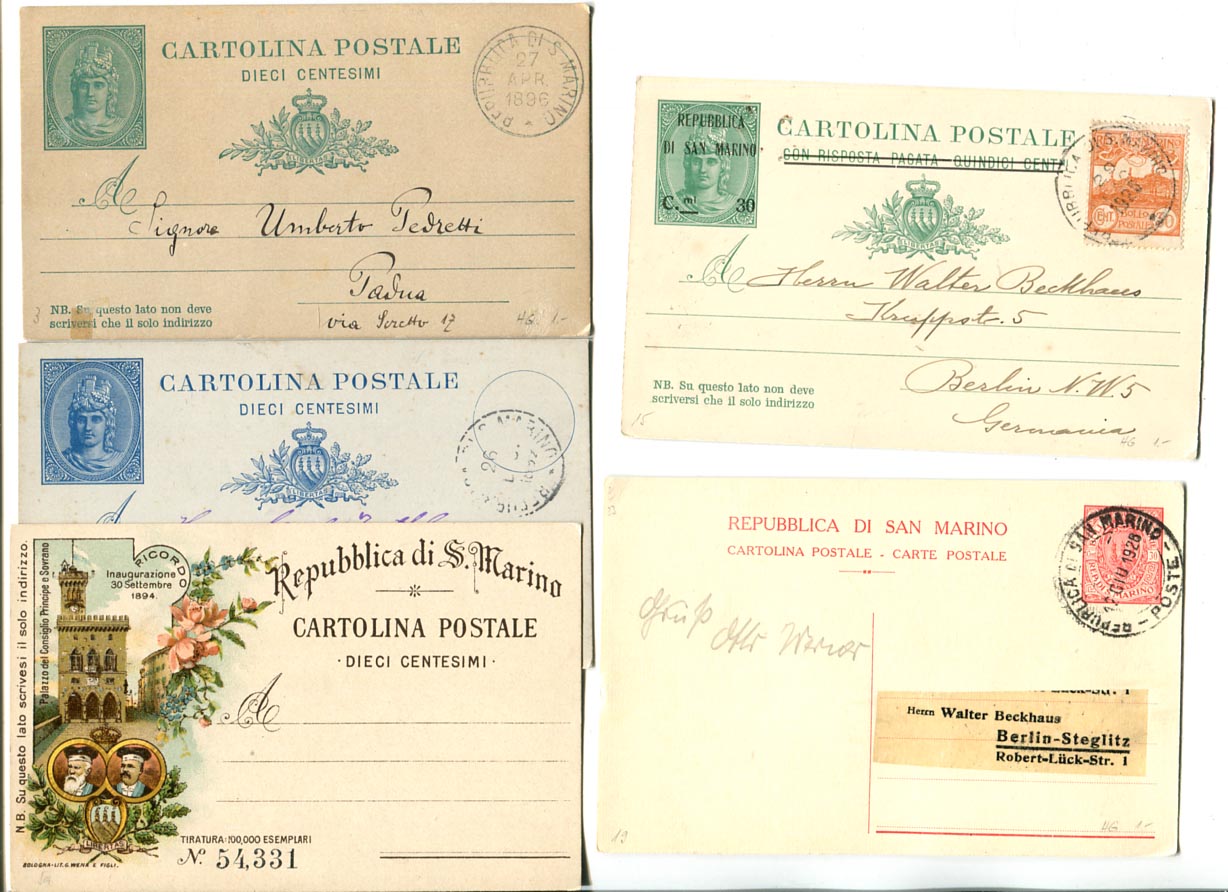 CARTOLINA POSTALE
DIECI CENTESIMI
REPUBBLICA DI S. MARINO
27
APR.
1896
LIBERTAS
A
Signore Umberto Pedretti
Padua
via Seretto 17
NB. Su questo lato non deve
scriversi che il solo indirizzo
3
HG. 1.-
CARTOLINA POSTALE
DIECI CENTESIMI
DI S. MARINO
26
LIBERTAS
N.B. Su questo lato scrivesi il solo indirizzo.
Palazzo del Consiglio Principe e Sovrano
RICORDO
Inaugurazione
30 Settembre
1894.
Repubblica di S. Marino
CARTOLINA POSTALE
· DIECI CENTESIMI ·
A
LIBERTAS
TIRATURA: 100,000 ESEMPLARI
N. 54,331
BOLOGNA-LIT. G. WENK E FIGLI.
REPUBBLICA
DI SAN MARINO
C.mi 30
CARTOLINA POSTALE
CON RISPOSTA PAGATA QUINDICI CENT
BOLLO
POSTALE
LIBERTAS
A Herrn Walter Beckhaus
Kruppstr. 5
Berlin N.W.5
Germania
NB. Su questo lato non deve
scriversi che il solo indirizzo
15
HG 1.-
REPUBBLICA DI SAN MARINO
CARTOLINA POSTALE - CARTE POSTALE
REPUBLICA DI SAN MARINO - POSTE -
GIU 1928
30
Gruß
Otto Werner
Lück-Str. 1
Herrn Walter Beckhaus
Berlin-Steglitz
Robert-Lück-Str. 1
19
HG 1.-